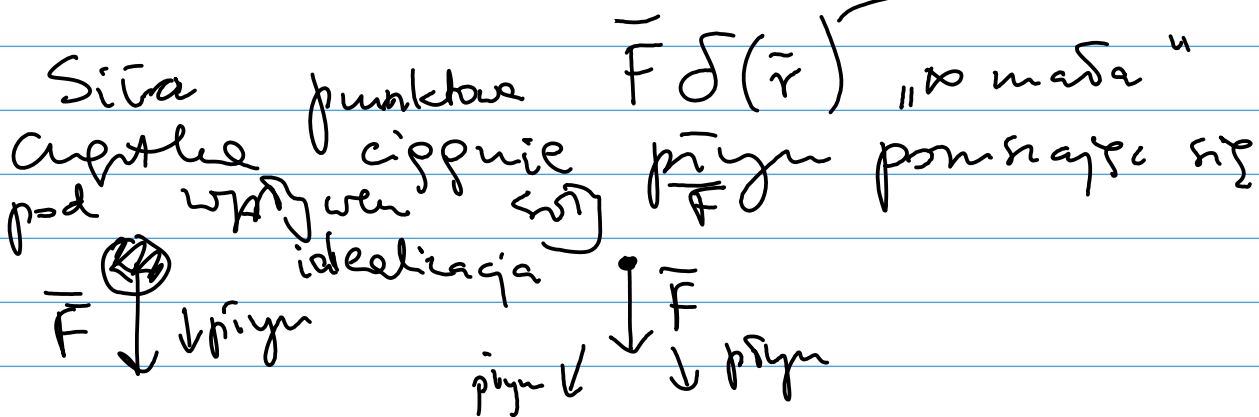 Siła punktowa F̅ δ(r̅) „∞ mała"
cząstka ciągnie płyn poruszając się
pod wpływem siły F̅
idealizacja
F̅ ↓ płyn F̅
płyn ↓ ↓ płyn